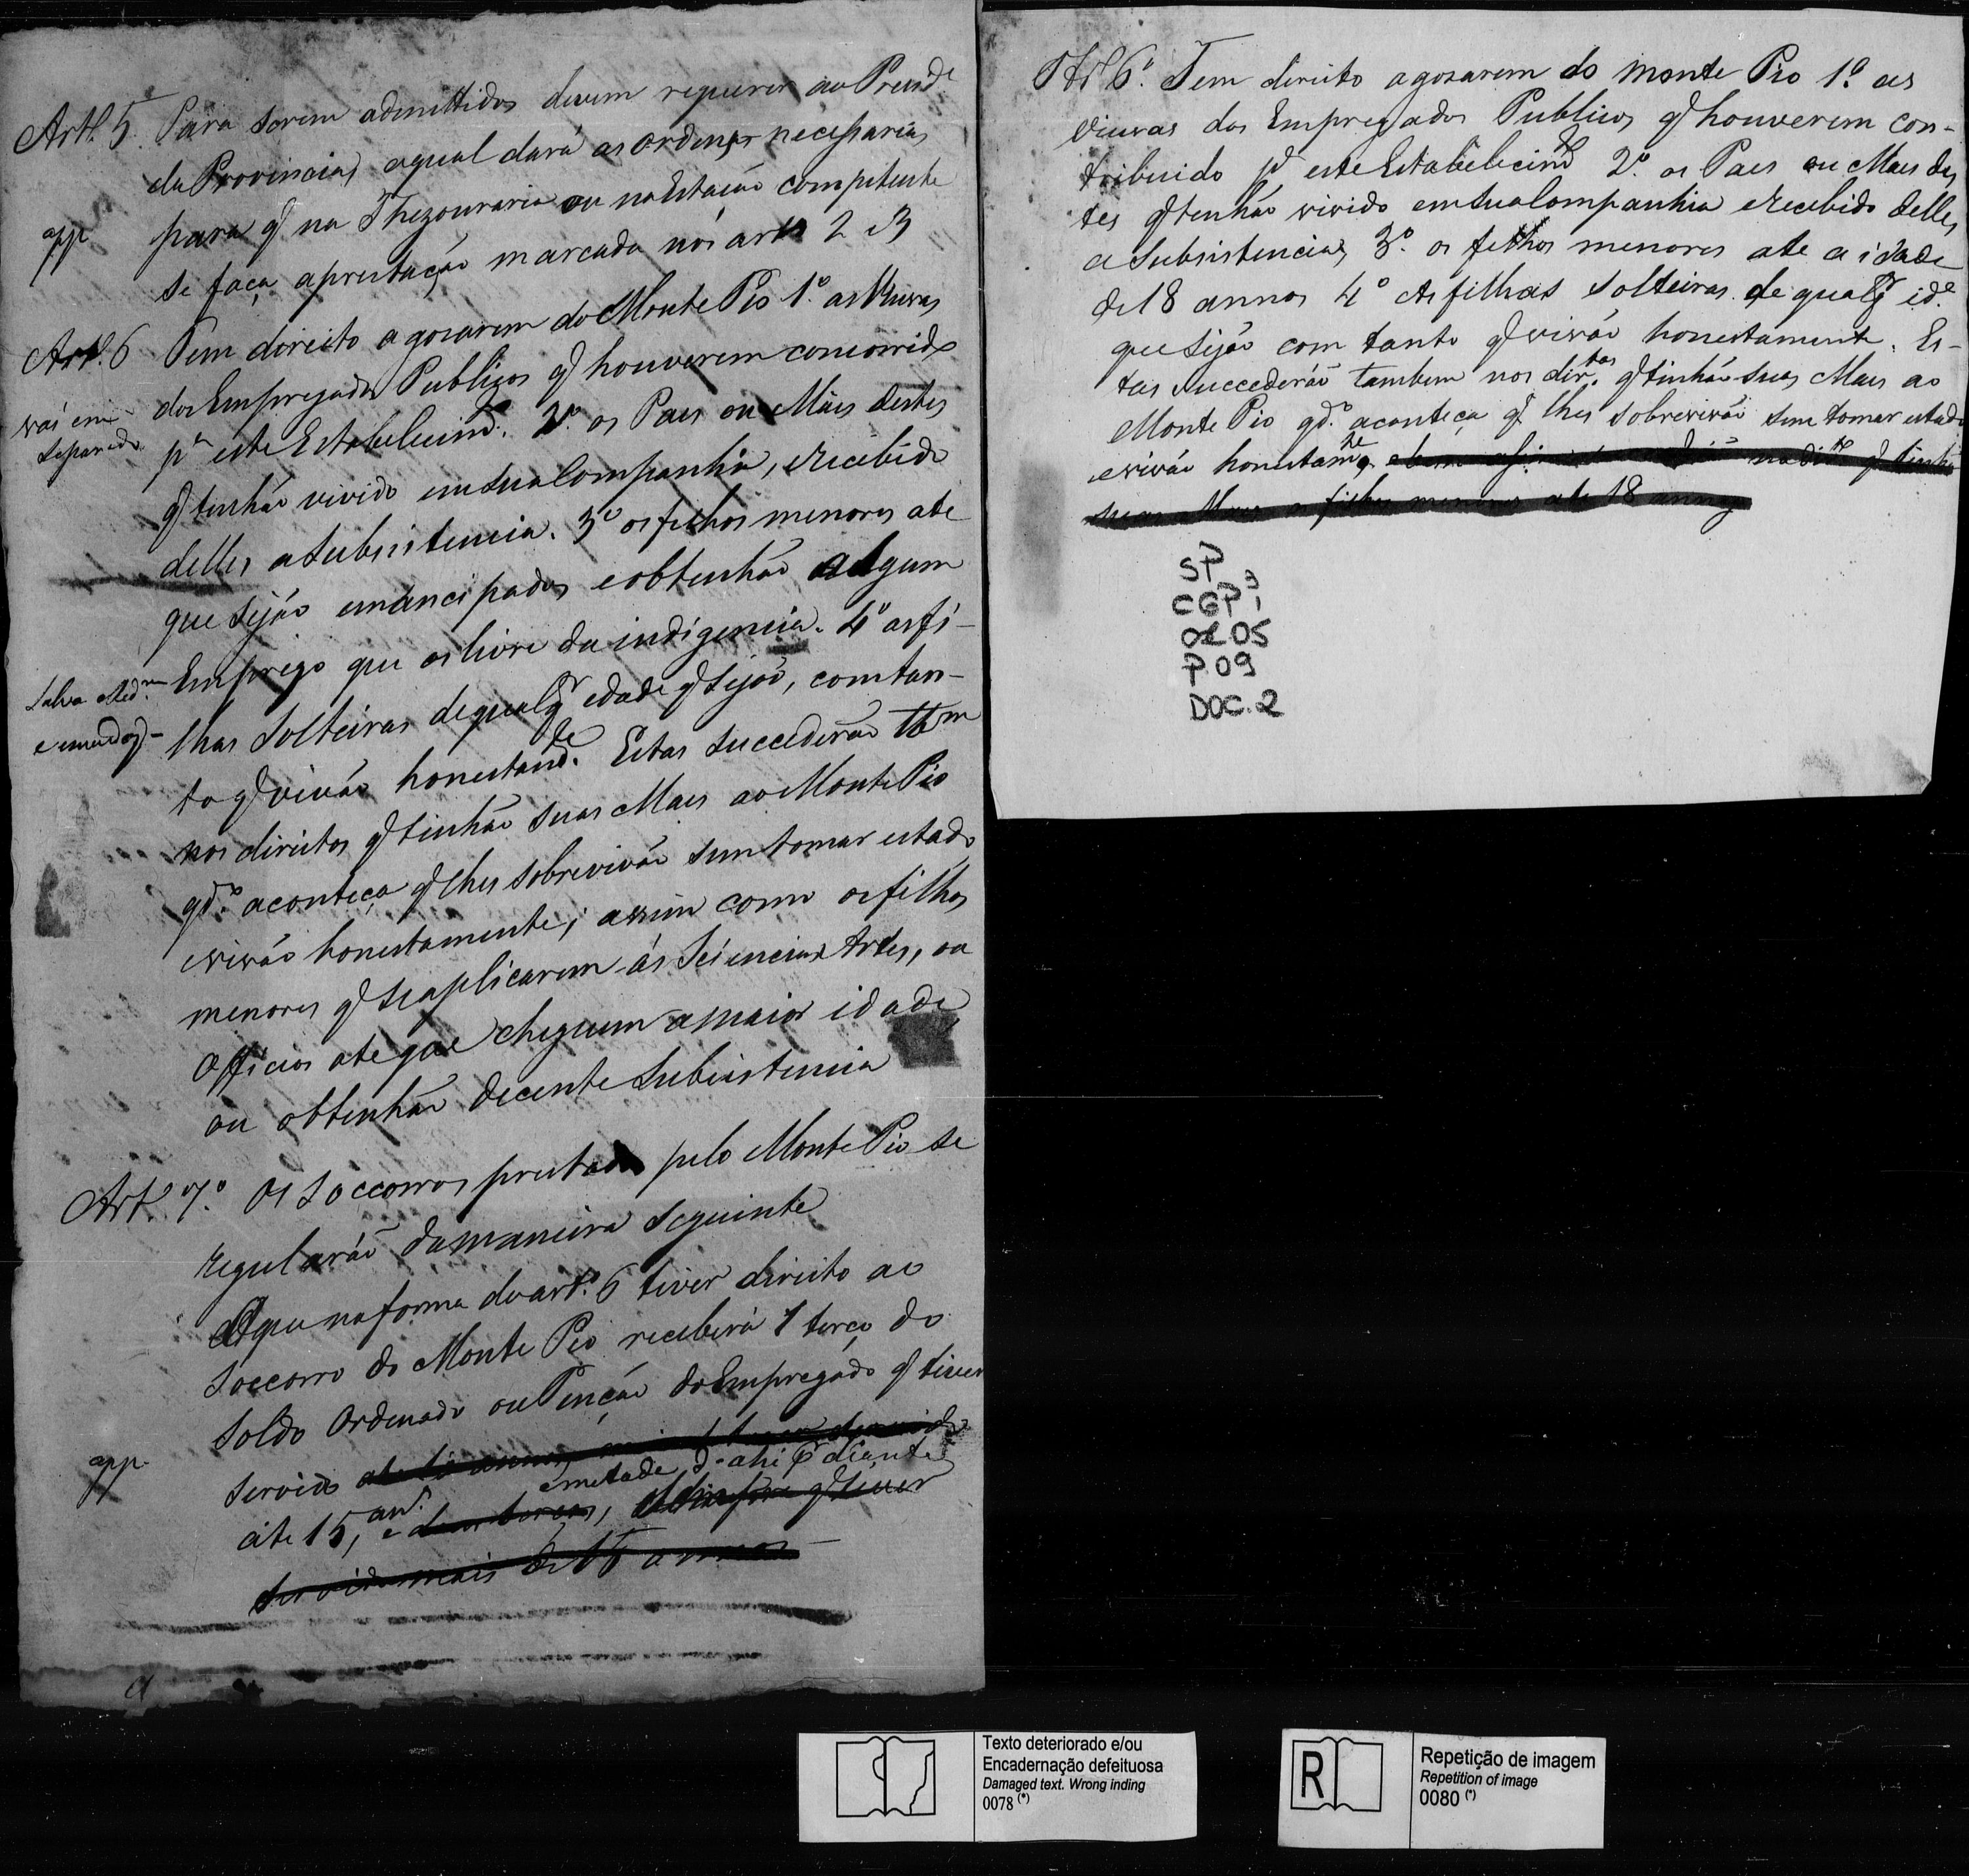 Artº. 5. Para serem admittidos devem requerer ao Presid.e
da Provincia, aqual dará as ordens necessarias
app para q na Thezouraria ou na Estação competente
se faça aprestação marcada nos arts 2 e 3
Artº. 6 Tem direito a gosarem do Monte Pio 1º. as Viuvas
dos Empregados Publicos q houverem concorrido
vai em separado
pª este Estabelecimtº. 2º. os Paes ou Mães destes
q tenhão vivido em sua Companhia, e recebido
delles a subsistencia. 3º os filhos menores ate
que sejão emancipados e obtenhão algum
Emprego que os livre da indigencia. 4º as fi-
Salva Red.m
e emendas-
lhas solteiras de qualqr edade q sejão, comtan-
to q vivão honestamte. Estas succederão tbm
nos direitos q tinhão suas Maes ao Monte Pio
qdº. aconteça q lhes sobrevivão sem tomar estado
e vivão honestamente; assim como os filhos
menores q se aplicarem ás Sciencias Artes, ou
Officios ate que cheguem a maior idade
ou obtenhão decente subsistencia
Artº. 7º. Os soccorros prestados pelo Monte Pio se
regularão da maneira seguinte
O que na forma do artº. 6 tiver direito ao
soccorro do Monte Pio receberá 1 terço do
soldo Ordenado ou Penção do Empregado q tiver
app.
servido
e metade d'ahi pr diante
ate 15, an.s e dous terços, q tiver
servido mais de 15 annos
Artº 6º. Tem direito a gosarem do monte Pio 1º. as
Viuvas dos Empregados Publicos q houverem con-
tribuido pª este Estabelecimtº 2º. os Paes ou Maes des
tes q tenhão vivido em sua Companhia e recebido delles
a subsistencia, 3º. os filhos menores ate a idade
de 18 annos 4º As filhas solteiras de qualqr ide
que sejão com tanto q vivão honestamente. Es-
tas succederão tambem nos dirtos. q tinhão suas Maes ao
Monte Pio qdº. aconteça q lhes sobrevivão sem tomar estado
e vivão honestamte, q tinhão
suas Maes os filhos menores ate 18 annos
SP
CGP3
02.05
P.09
DOC.2
Texto deteriorado e/ou
Encadernação defeituosa
Damaged text. Wrong inding
0078 (*)
R
Repetição de imagem
Repetition of image
0080 (*)